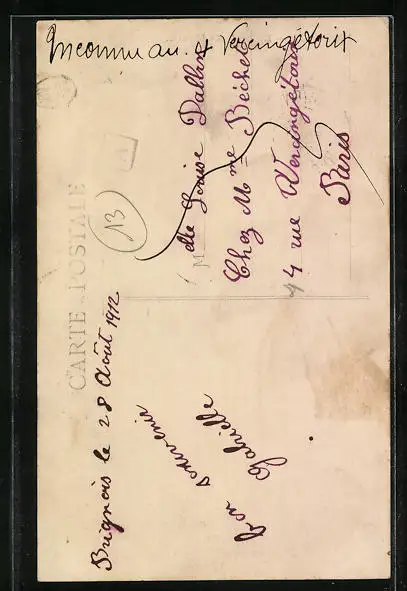 Inconnu au 4 Vercingétorix
CARTE POSTALE
13
Brignais le 28 Août 1912
bon souvenir
Gabrielle
Mlle Louise
Chez Mme Béchet
4 rue Verangétorix
Paris